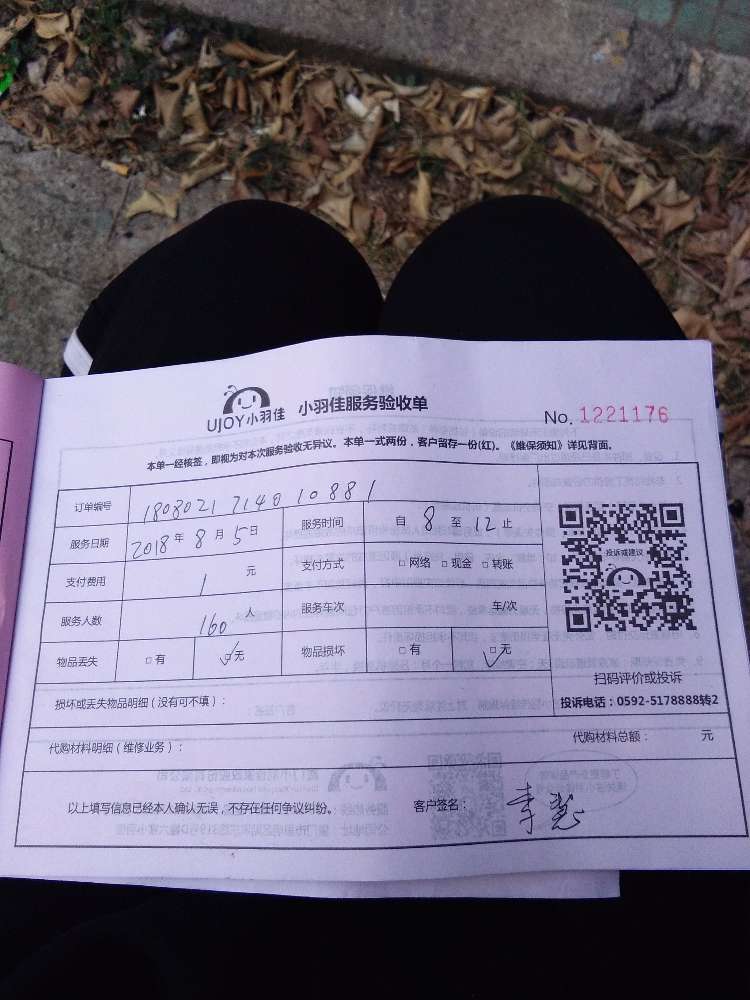 UJOY小羽佳 小羽佳服务验收单 No. 1221176
本单一经核签，即视为对本次服务验收无异议。本单一式两份，客户留存一份(红)。《维保须知》详见背面。
订单编号 180802171401088 1
服务日期 2018年8月5日 服务时间 自8至12止
支付费用 1 元 支付方式 □网络 □现金 □转账
服务人数 160 人 服务车次 车/次
物品丢失 □有 ☑无 物品损坏 □有 ☑无
投诉或建议
扫码评价或投诉
投诉电话：0592-5178888转2
损坏或丢失物品明细（没有可不填）：
代购材料明细（维修业务）： 代购材料总额： 元
以上填写信息已经本人确认无误，不存在任何争议纠纷。 客户签名：